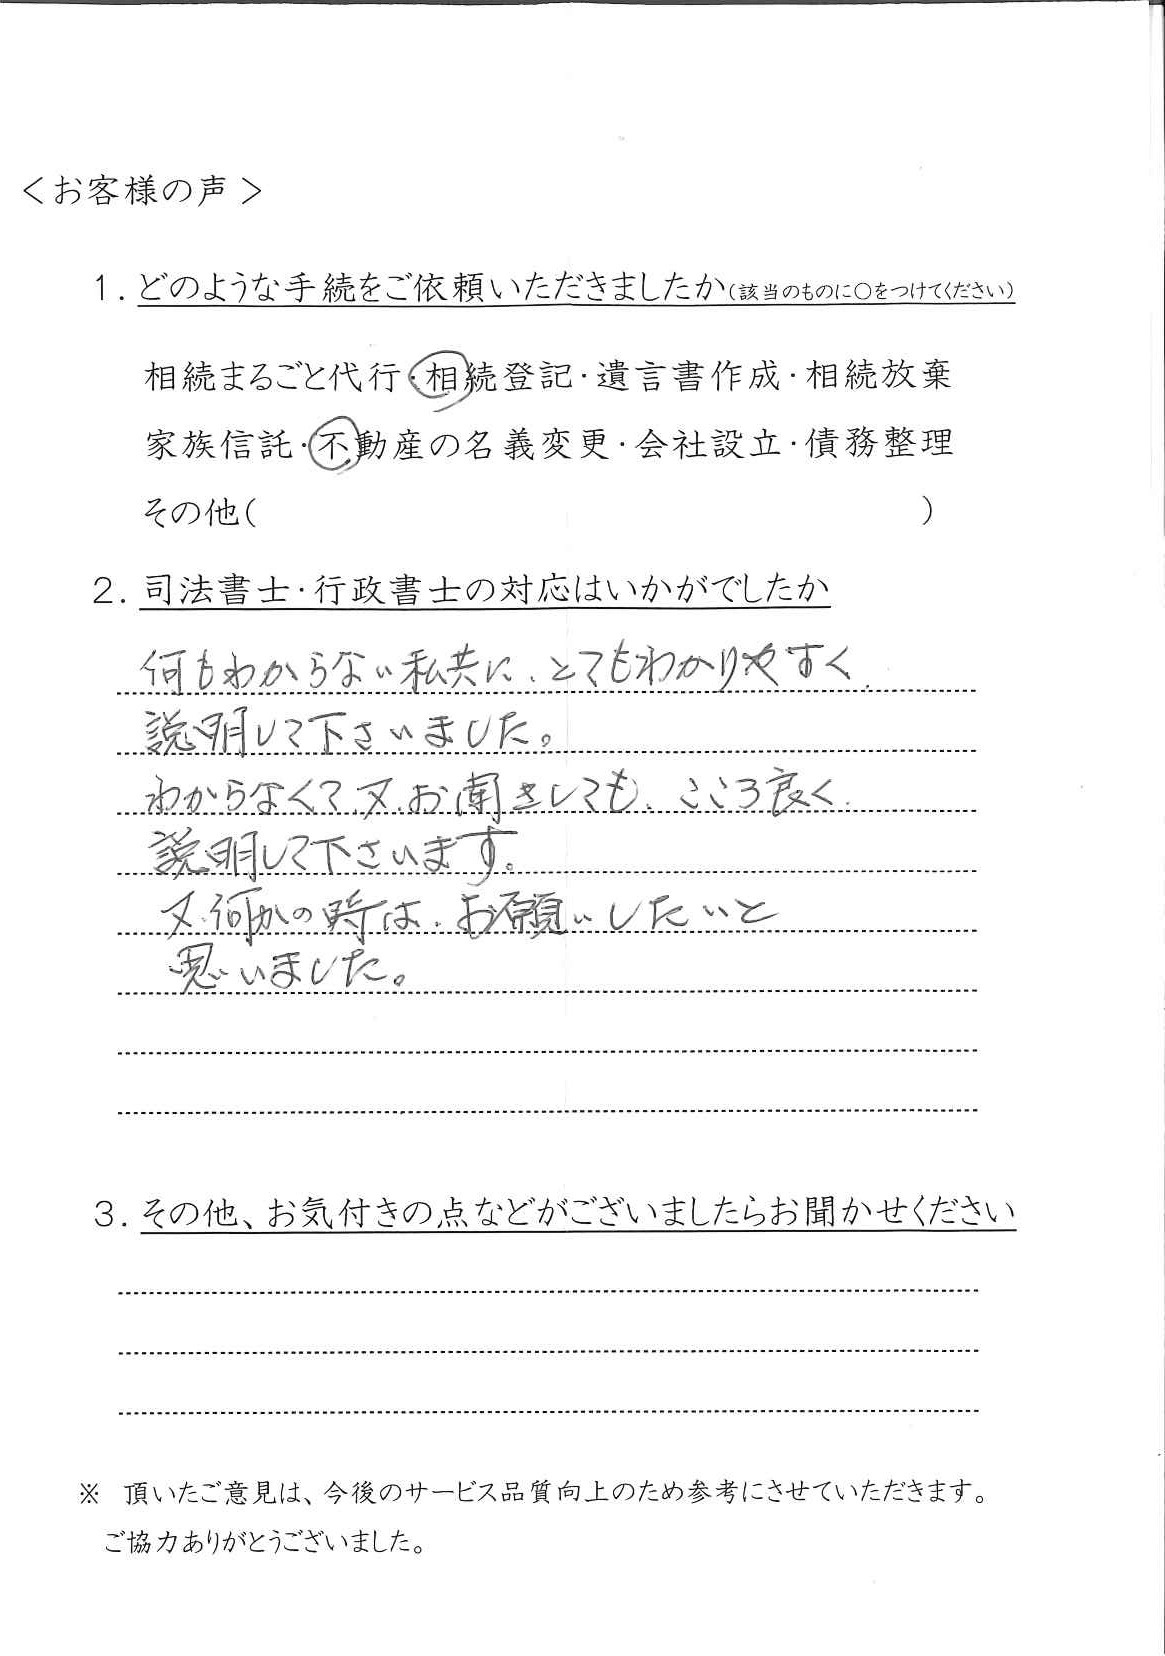 ＜お客様の声＞
1. どのような手続をご依頼いただきましたか(該当のものに○をつけてください)
相続まるごと代行・相続登記・遺言書作成・相続放棄
家族信託・不動産の名義変更・会社設立・債務整理
その他(　　　　　　　　　　)
2. 司法書士・行政書士の対応はいかがでしたか
何もわからない私共に、とてもわかりやすく、
説明して下さいました。
わからなくて、又、お聞きしても、こころ良く、
説明して下さいます。
又、何かの時は、お願いしたいと
思いました。
3. その他、お気付きの点などがございましたらお聞かせください
※　頂いたご意見は、今後のサービス品質向上のため参考にさせていただきます。
ご協力ありがとうございました。